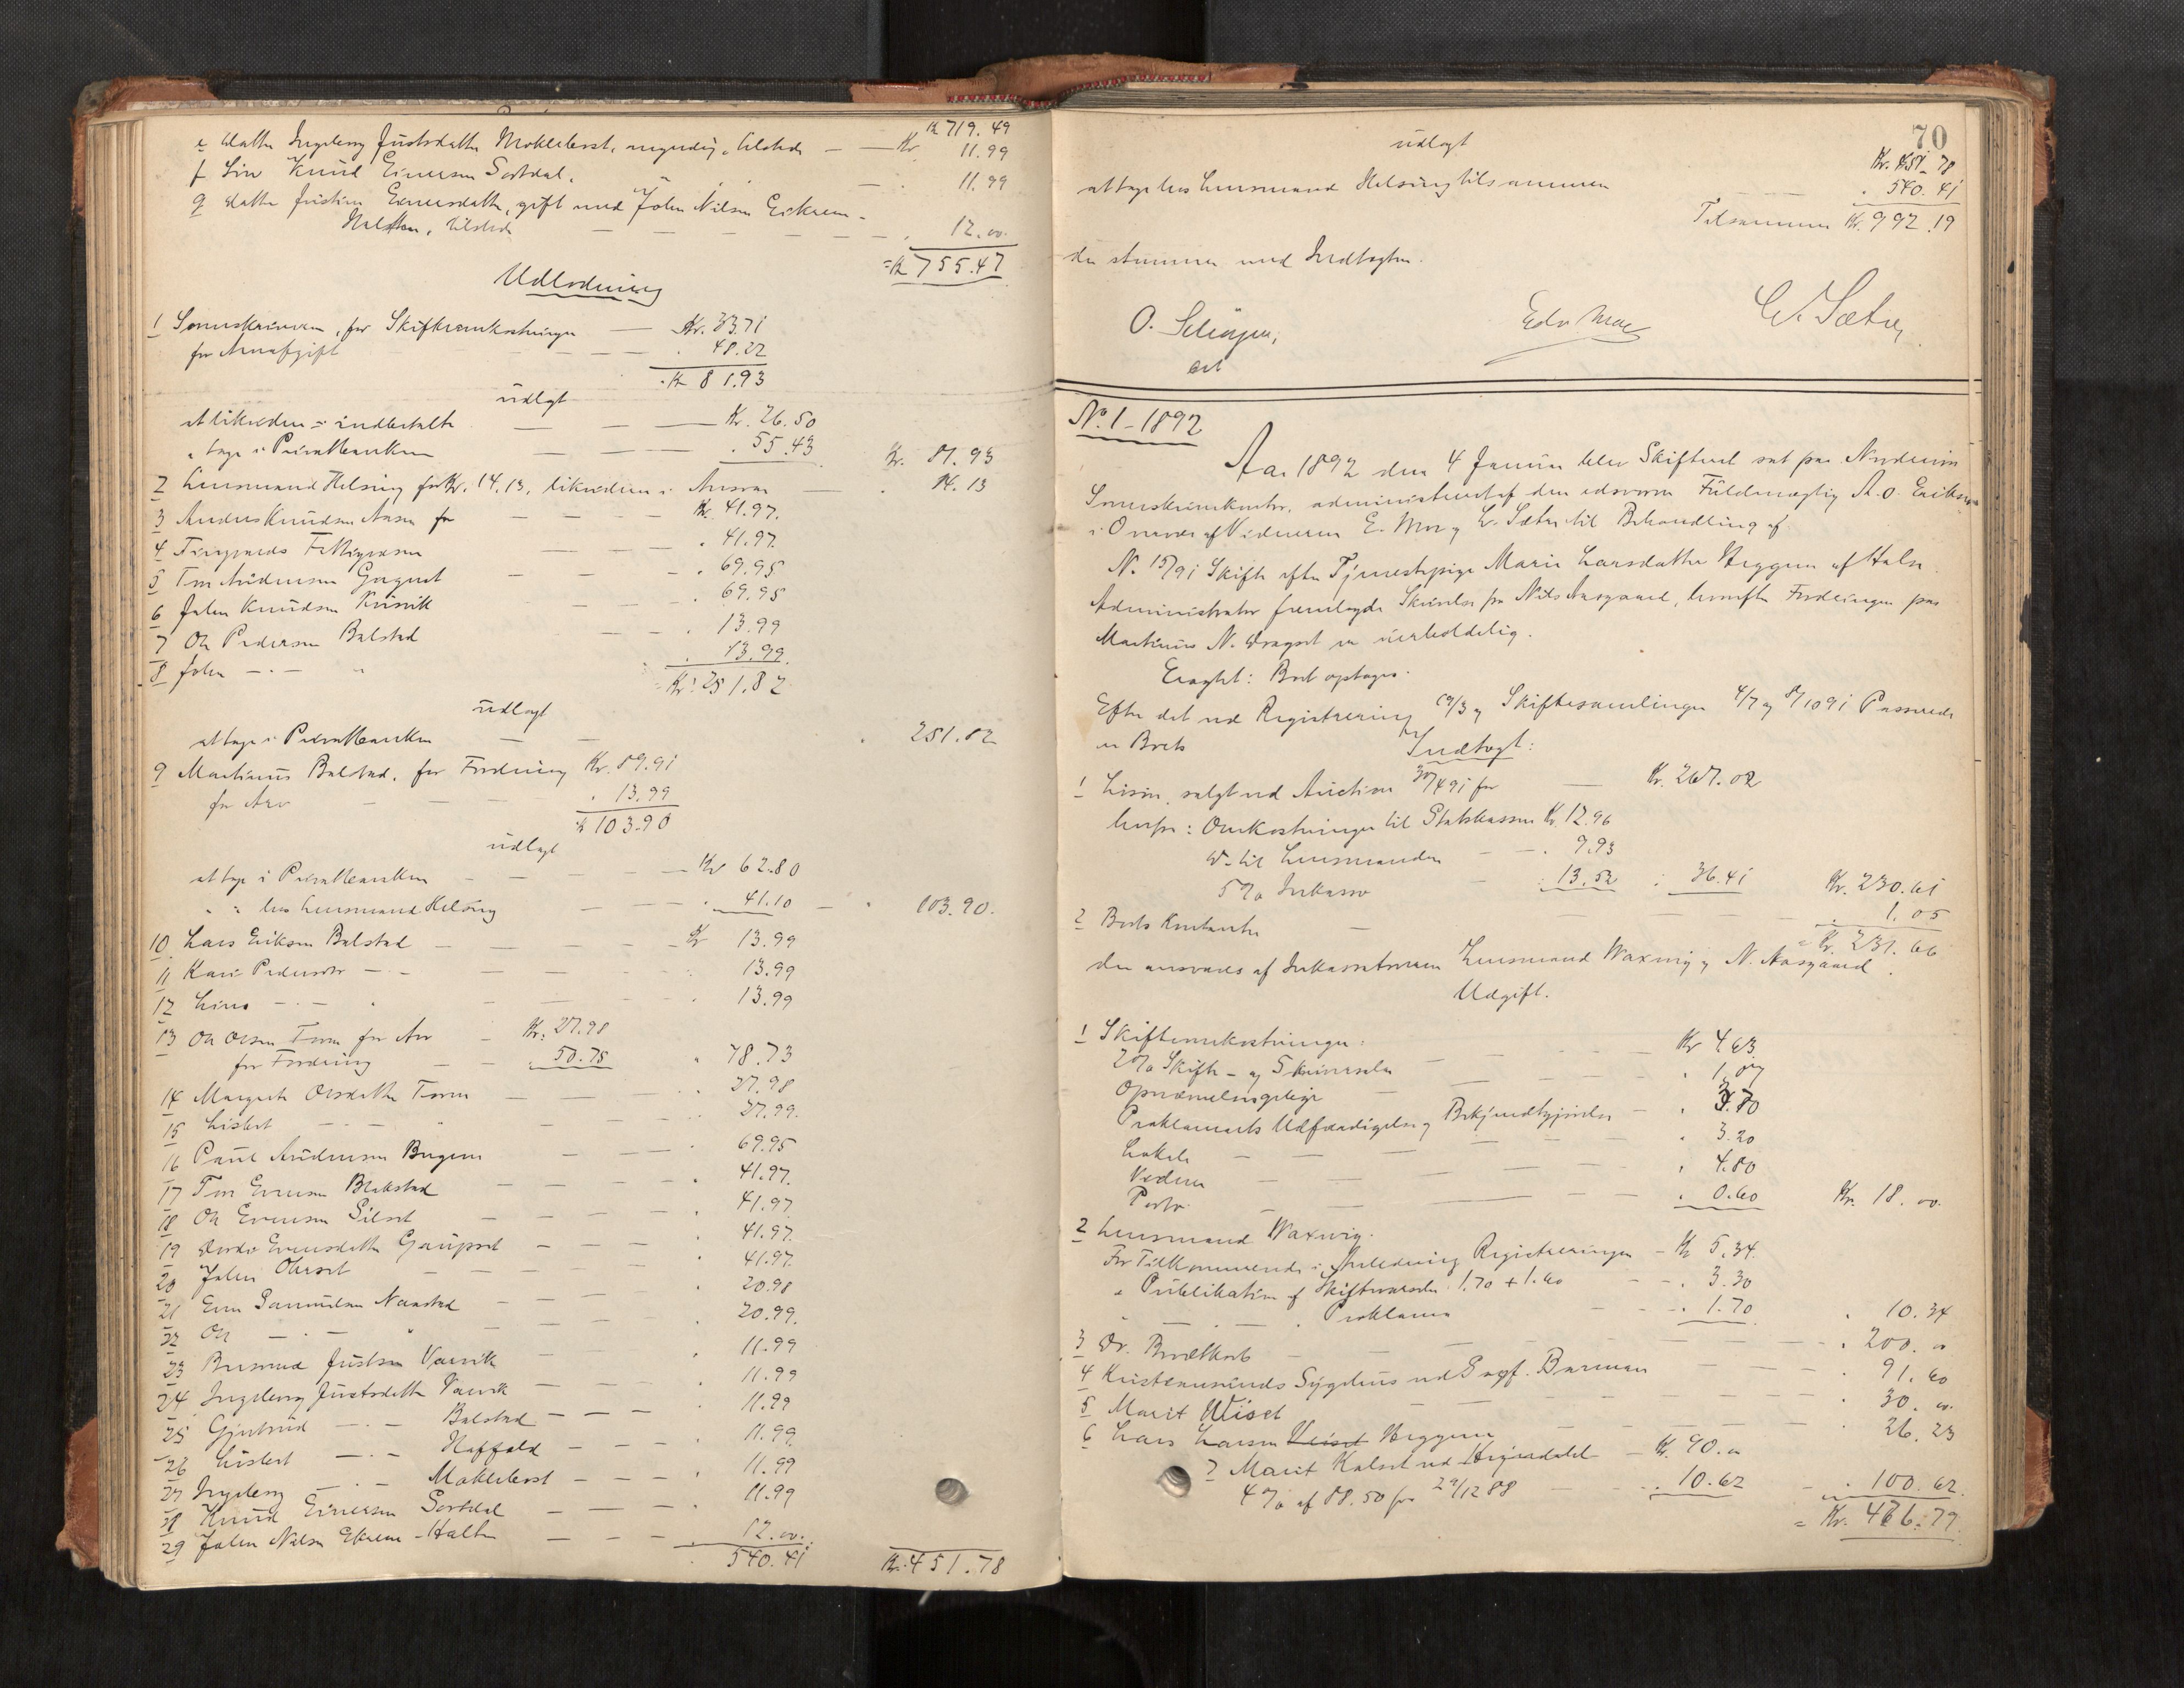 Kr 719.49
e Datter Ingeborg Justsdatter Møkleberst, myndig, tilstede — Kr. 11.99
f Søn Knud Einersen Sortdal, — . 11.99
g Datter Justine Einersdatter, gift med John Nilsen Eikrem-
Halten, tilstede — — — — . 12.00
= Kr 755.47
Udlodning
1 Sorenskriveren, for Skifteomkostninger — Kr. 33.71
for Arveafgift — — — . 48.22
Kr 81.93
udlagt
at likvidere indbetalt — — — Kr. 26.50
" tage i Privatbanken — — — . 55.43 Kr. 81.93
2 Lensmand Helsing for Kr. 14.13, likvideres i Ansvar — . 14.13
3 Anders Knudsen Aasen for — — — Kr. 41.97
4 Tingvolds Fattigvæsen — — . 41.97
5 Tore Andersen Gagnat — — . 69.95
6 John Knudsen — — . 69.95
7 Ole Pedersen Balstad — — . 13.99
8 John — . — " . 13.99
= Kr. 251.82
udlagt
at tage i Privatbanken — — . 251.82
9 Martinus Balstad, for Fordring Kr. 89.91
for Arv — — — . 13.99
Kr 103.90
udlagt
at tage i Privatbanken — — — Kr 62.80
" " hos Lensmand Helsing — — . 41.10 — " 103.90.
10 Lars Eriksen Balstad — — — Kr 13.99
11 Kari Pedersdtr — . — — — . 13.99
12 Lina — . — " — — . 13.99
13 Ole Olsen Torve for Arv — Kr. 27.98
for Fordring — — . 50.75 " 78.73
14 Margrete Olsdatter Torve — — — . 27.98
15 Lisbet — . — " — — . 27.99.
16 Paul Andersen Bugen — — — . 69.95
17 Tore Evensen Blakstad — — — . 41.97.
18 Ole Evensen Silset — — — . 41.97
19 Dordi Evensdatter Gaupset — — — . 41.97.
20 John Olerset — — — . 41.97.
21 Even Samuelsen Naastad — — — . 20.98
22 Ole — . — " — — . 20.99.
23 Just­sen Vaavik — — — . 11.99
24 Ingeborg Justsdatter Vaavik — — — . 11.99
25 Gjertrud — . — Balstad — — — . 11.99
26 Lisbet — . — Hoffald — — — . 11.99.
27 Ingeborg — . — Møkleberst — — — . 11.99
28 Knud Einersen Sortdal — — — . 11.99
29 John Nilsen Ekrem-Halten — — — . 12.00.
540.41 Kr. 451.78
70
udlagt Kr. 451.78
at tage hos Lensmand Helsing tilsammen — — . 540.41
Tilsammen Kr. 992.19
der stemmer med Indtægten.
O. Schiøpen, Edv Moe W. Sæter
cst
No. 1 - 1892
Aar 1892 den 4 Januar blev Skifteret sat paa Nordmør
Sorenskriverkontor, administreret af den edsvorne Fuldmægtig A. O. Eriksen
i Overvær af Vidnerne E. Moe og W. Sæter til Behandling af
No. 15/91 Skifte efter Tjenestepige Marie Larsdatter Heggem af Halse.
Administrator fremlagde Skrivelse fra Nils Aasgaard, hvorefter Fordringen paa
Martinus N. Dragset er uerholdelig.
Eragtet: Boet optages.
Efter det ved Registrering 19/3 og Skiftesamlinger 4/7 og 8/10 91 Passerede
er Boets Indtægt:
1 Løsøre, solgt ved Auction 30/4 91 for — Kr. 267.02
herfra: Omkostninger til Statskassen Kr. 12.96
Do. til Lensmanden — — . 9.93
5 % Inkasso — . 13.52 . 36.41 Kr. 230.61
2 Boets Kontanter — — — . 1.05
= Kr. 231.66
der ansvares af Inkassatoren Lensmand Waxwig og N. Aasgaard.
Udgift.
1 Skifteomkostninger:
2 % Skifte- og Skriversalær — — Kr 4.63
Opnævnelsesgebyr — — . 1.07
Proklamaets Udfærdigelse og Bekjendtgjørelse — . 3.70
Lokale — — — . 3.20
Vidner — — — . 4.80
Porto — — — . 0.60 Kr. 18.00.
2 Lensmand Waxwig.
For Tilkommende i Anledning Registreringen — Kr 5.34.
" Publikation af Skiftevarsler 1.70 + 1.60 — . 3.30
" — . — . Proklama — — . 1.70 . 10.34
3 Dr. Brodtkorb — — — . 200.00
4 Kristiansunds Sygehus ved Berman — — . 91.60
5 Marit Weiset — — — . 30.00
6 Lars Larsen Weiset Heggem — — . 26.23
7 Marit Kalset ved — Kr. 90.00
4 % af 88.50 fra 29/12 88 — . 10.62 — . 100.62.
= Kr. 476.79.